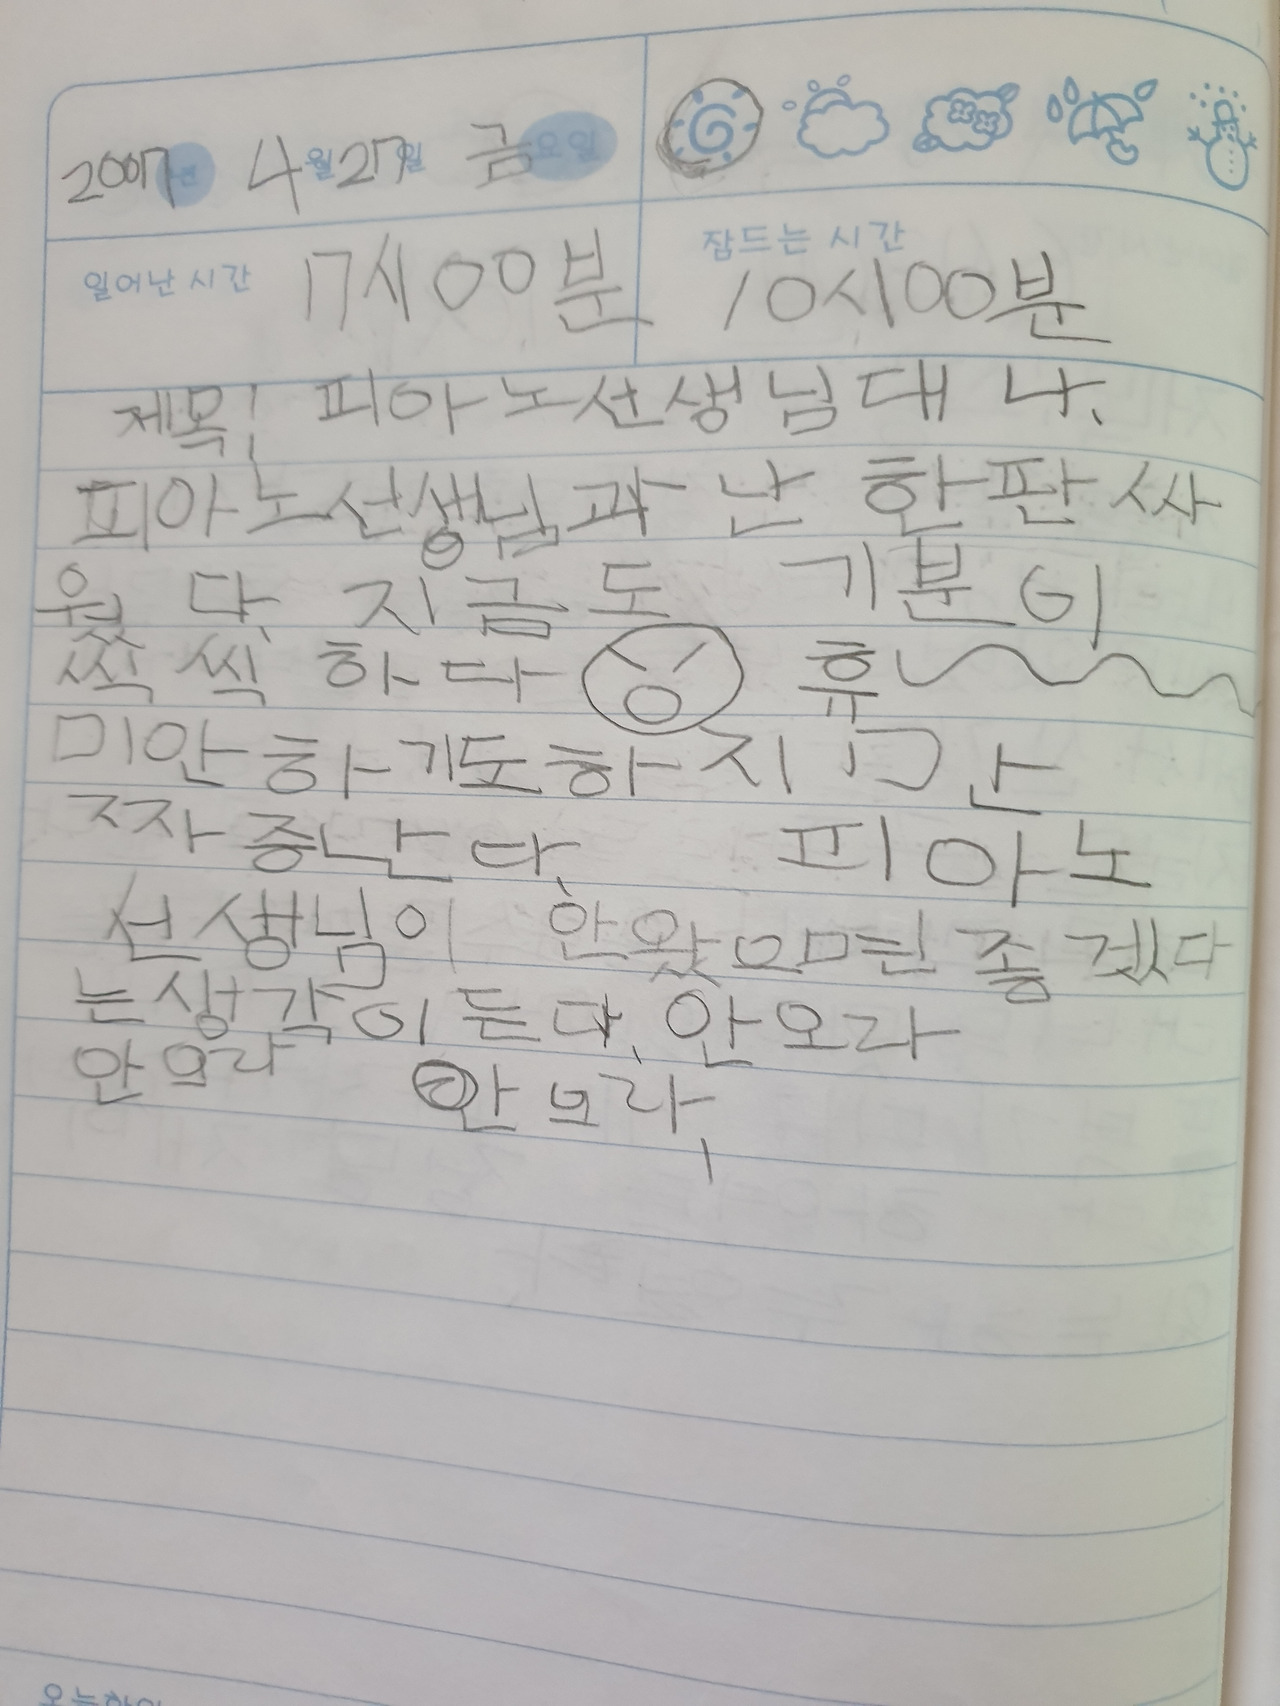 2007년 4월 27일 금요일
일어난 시간 17시00분 잠드는 시간 10시00분
제목! 피아노선생님대 나.
피아노선생님과 난 한판 싸
웠다. 지금도 기분이
씩씩하다 휴
미안하기도하지만
짜증난다. 피아노
선생님이 안왔으면 좋겠다
는생각이 든다. 안오라
안오라 안오라,